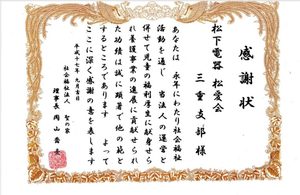 感謝状
松下電器 松愛会
三重支部 様
あなたは 永年にわたり社会福祉
活動を通じ 当法人の運営と
併せて児童の福利厚生に献身せら
れ養護事業の進展に貢献せられ
た功績は誠に顕著で他の範と
するところであります よって
ここに深く感謝の意を表します
平成十七年 九月吉日
社会福祉法人 聖の家
理事長 岡山